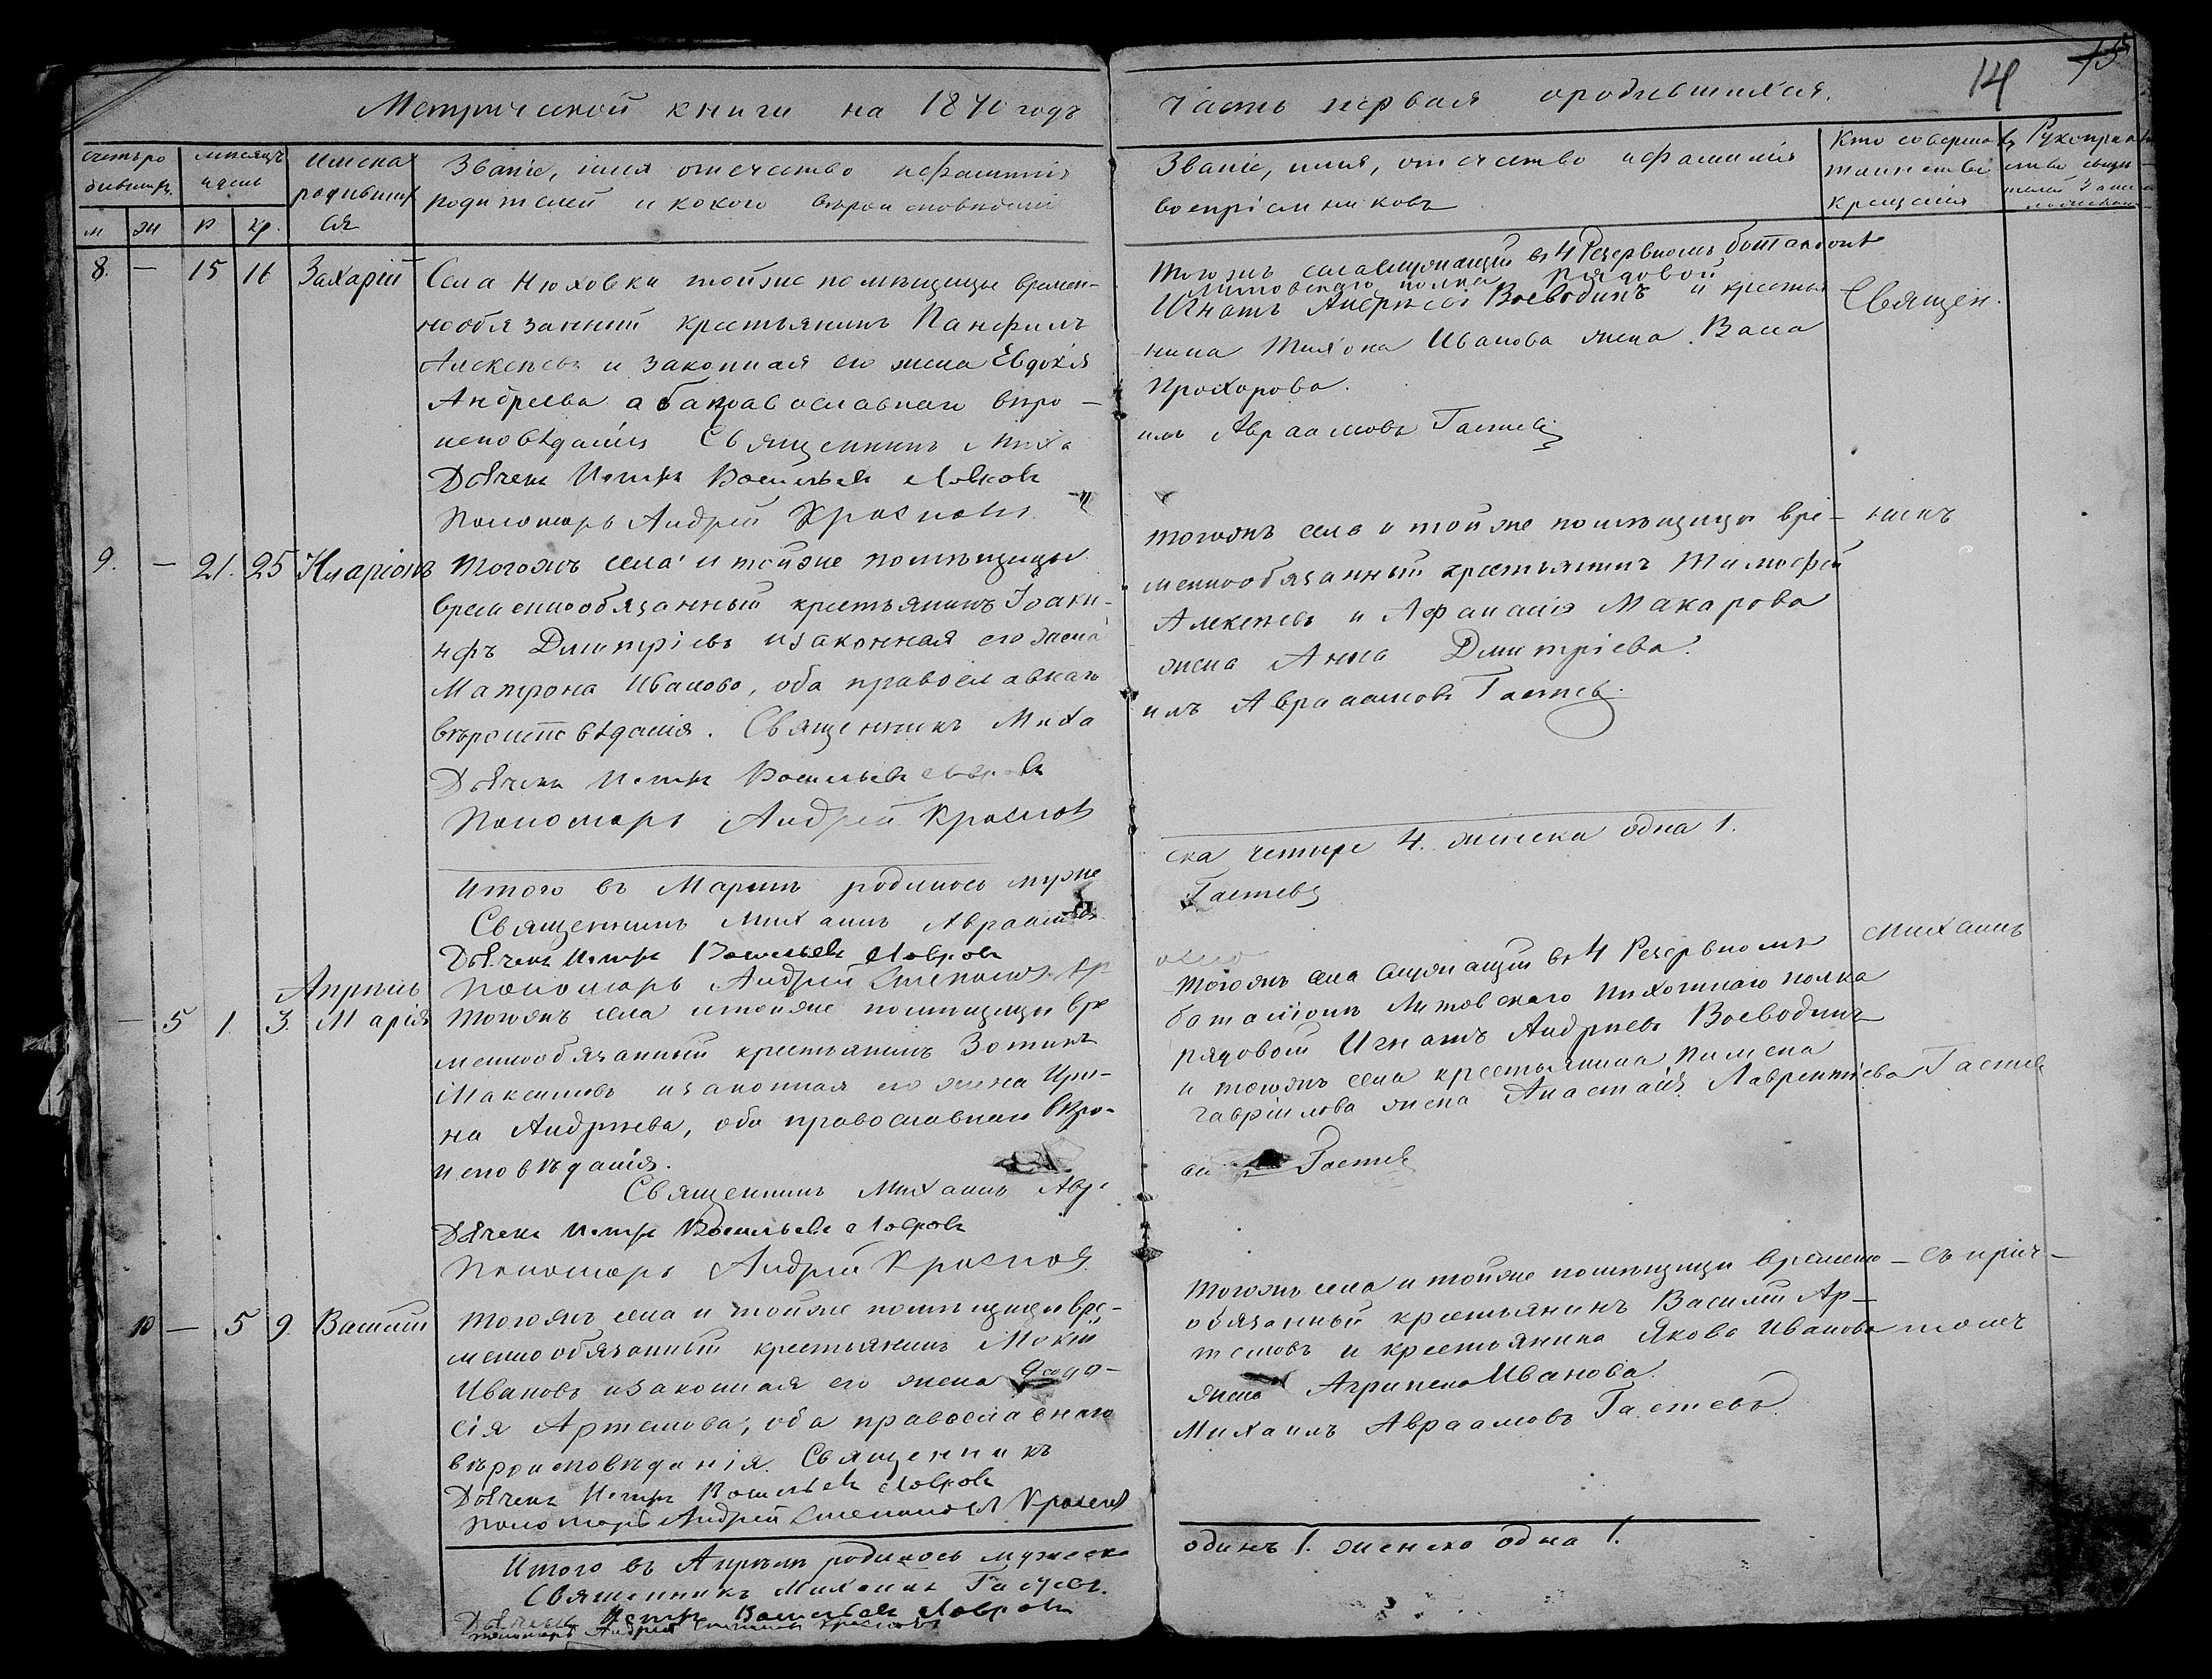 14 15
Метрической книги на 1870 годъ
часть первая ородившихся.
счетъ ро
дившихъ.
м ж
месяцъ
и день
р кр.
Имена
родивших
ся
Званіе, имя отечество и фамилія
родителей и какого вероисповеданія
Званіе, имя, отечество и фамилія
воспріемниковъ
Кто совершалъ
таинство
крещенія
Рукоприклад
ство свиде
телей записи
8. — 15 16 Захарій
Села Нюховки тойже помѣщицы времен-
нообязанный крестьянинъ Панфилъ
Алексѣевъ и законная его жена Евдокія
Андреева оба православнаго вѣро-
исповѣданія Священникъ Миха
Дьячекъ Петръ Васильевъ Лавровъ
Пономарь Андрей Красновъ
Тогожъ села служащій въ 4 Резервномъ баталіонѣ
Литовскаго полка рядовой
Игнатъ Андреевъ Воеводинъ и крестья
нина Тихона Иванова жена Васа
Прохорова.
илъ Авраамовъ Гастевъ
Священ.
9. — 21. 25 Иларіонъ
Тогожъ села и тойже помѣщицы
временнообязанный крестьянинъ Іоаки-
нфъ Дмитріевъ и законная его жена
Матрона Иванова, оба православнаго
вѣроисповѣданія. Священникъ Миха
Дьячекъ Петръ Васильевъ Лавровъ
Пономарь Андрей Красновъ
Тогожъ села и тойже помѣщицы вре-
меннообязанный крестьянинъ Тимофей
Алексѣевъ и Афанасія Макарова
жена Анна Дмитріева.
илъ Авраамовъ Гастевъ.
никъ
Итого въ Мартѣ родилось муже
ска четыре 4. женска одна 1.
Священникъ Михаилъ Авраамовъ
Гастевъ
Дьячекъ Петръ Васильевъ Лавровъ
Пономарь Андрей Степановъ Кр
Апрѣль
— 5 1. 3. Марія
Тогожъ села и тойже помѣщицы вре
меннообязанный крестьянинъ Зотикъ
Максимовъ и законная его жена Ири-
на Андрѣева, оба православнаго вѣро-
исповѣданія.
Священникъ Михаилъ Авра
Дьячекъ Петръ Васильевъ Лавровъ
Пономарь Андрей Красновъ
Тогожъ села служащій въ 4 Резервномъ
баталіонѣ Литовскаго пихотнаго полка
рядовой Игнатъ Андрѣевъ Воеводинъ
и тогожъ села крестьянина Пимена
Гаврилова жена Анастасія Лаврентіева
Гастевъ
Михаилъ
Гастев
10 — 5 9. Василій
Тогожъ села и тойже помѣщицы вре-
меннообязанный крестьянинъ Мокій
Ивановъ и законная его жена Феодо-
сія Артемова, оба православнаго
вѣроисповѣданія. Священникъ
Дьячекъ Петръ Васильевъ Лавровъ
Пономарь Андрей Степановъ Красновъ
Тогожъ села и тойже помѣщицы временно-
обязанный крестьянинъ Василій Ар-
темовъ и крестьянина Якова Иванова
жена Агрипена Иванова.
Михаилъ Авраамовъ Гастевъ.
съ прич-
томъ
Итого въ Апрѣлѣ родилось мужеска
одинъ 1. женска одна 1.
Священникъ Михаилъ Гастевъ.
Дьячекъ Петръ Васильевъ Лавровъ
пономарь Андрей Степановъ Красновъ